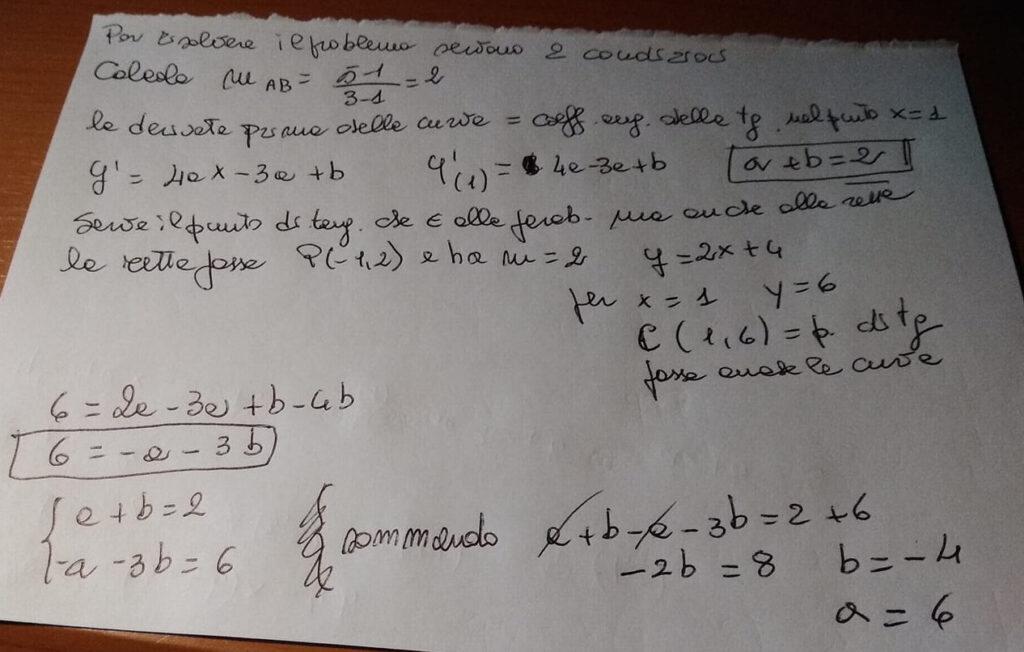 Per risolvere il problema servono 2 condizioni
Calcolo m AB = 5-1 / 3-1 = 2
la derivata prima della curva = coeff. ang. della tg. nel punto x = 1
y' = 4ax - 3a + b y'(1) = 4a - 3a + b a + b = 2
Serve il punto di tang. che ∈ alla parab. ma anche alla retta
la retta passa P(-1,2) e ha m = 2 y = 2x + 4
per x = 1 y = 6
C (1,6) = p. di tg
passa anche la curva
6 = 2a - 3a + b - 4b
6 = -a - 3b
a + b = 2
-a - 3b = 6 sommando a + b - a - 3b = 2 + 6
-2b = 8 b = -4
a = 6